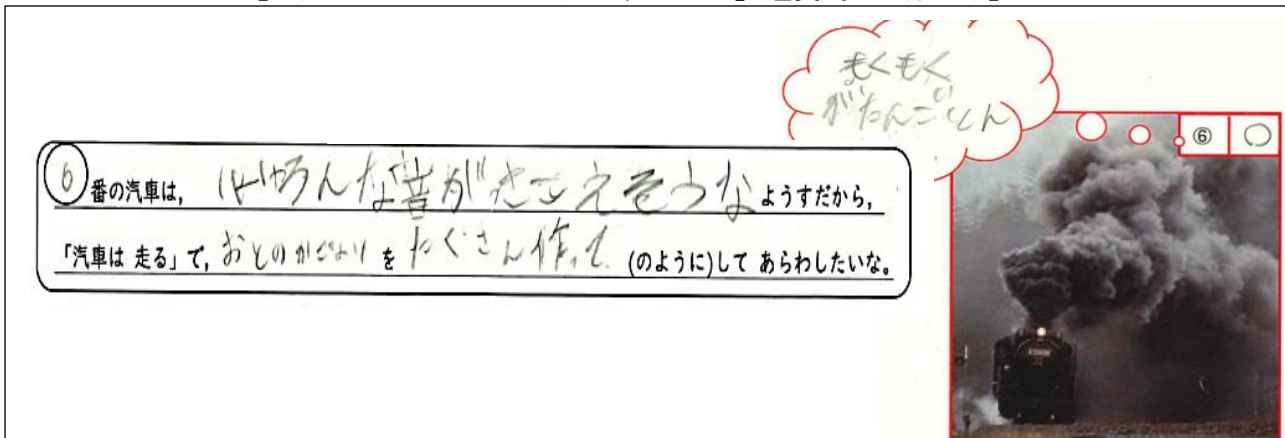 もくもく
がたんごとん
⑥ ○
⑥番の汽車は, いろんな音がきこえそうな ようすだから,
「汽車は 走る」で, おとのかさなり を たくさん作って (のように)して あらわしたいな。